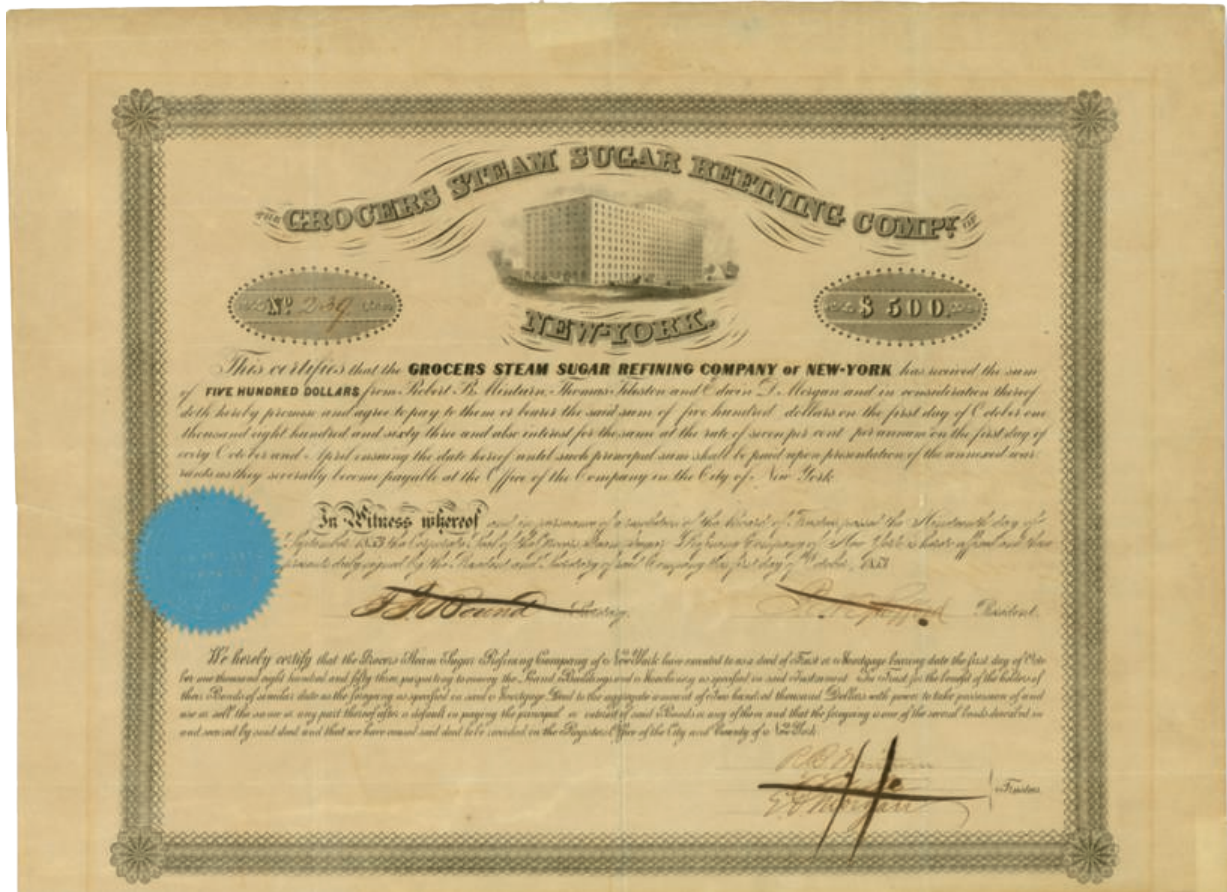 THE GROCERS STEAM SUGAR REFINING COMPY. OF
NEW-YORK.
No. 239
$ 500.
This certifies that the GROCERS STEAM SUGAR REFINING COMPANY of NEW-YORK has received the sum
of FIVE HUNDRED DOLLARS from Robert B. Minturn, Thomas Tileston and Edwin D. Morgan and in consideration thereof
doth hereby promise and agree to pay to them or bearer the said sum of five hundred dollars on the first day of October one
thousand eight hundred and sixty three and also interest for the same at the rate of seven per cent per annum on the first day of
every October and April ensuing the date hereof until such principal sum shall be paid upon presentation of the annexed war-
rants as they severally become payable at the Office of the Company in the City of New York
In Witness whereof and in pursuance of a resolution of the Board of Trustees passed the Nineteenth day of
September 1853 the Corporate Seal of the Grocers Steam Sugar Refining Company of New York is hereto affixed and these
presents duly signed by the President and Secretary of said Company this first day of October, 1853
Secretary.
President.
We hereby certify that the Grocers Steam Sugar Refining Company of New York have executed to us a deed of Trust or Mortgage bearing date the first day of Octo
ber one thousand eight hundred and fifty three purporting to convey the Land Buildings and Machinery as specified in said Instrument In Trust for the benefit of the holders of
their Bonds of similar date as the foregoing as specified in said Mortgage Deed to the aggregate amount of Two hundred thousand Dollars with power to take possession of and
use or sell the same or any part thereof after a default in paying the principal or interest of said Bonds or any of them and that the foregoing is one of the several bonds described in
and secured by said deed and that we have caused said deed to be recorded in the Registers Office of the City and County of New York
R B Minturn
E D Morgan
Trustees